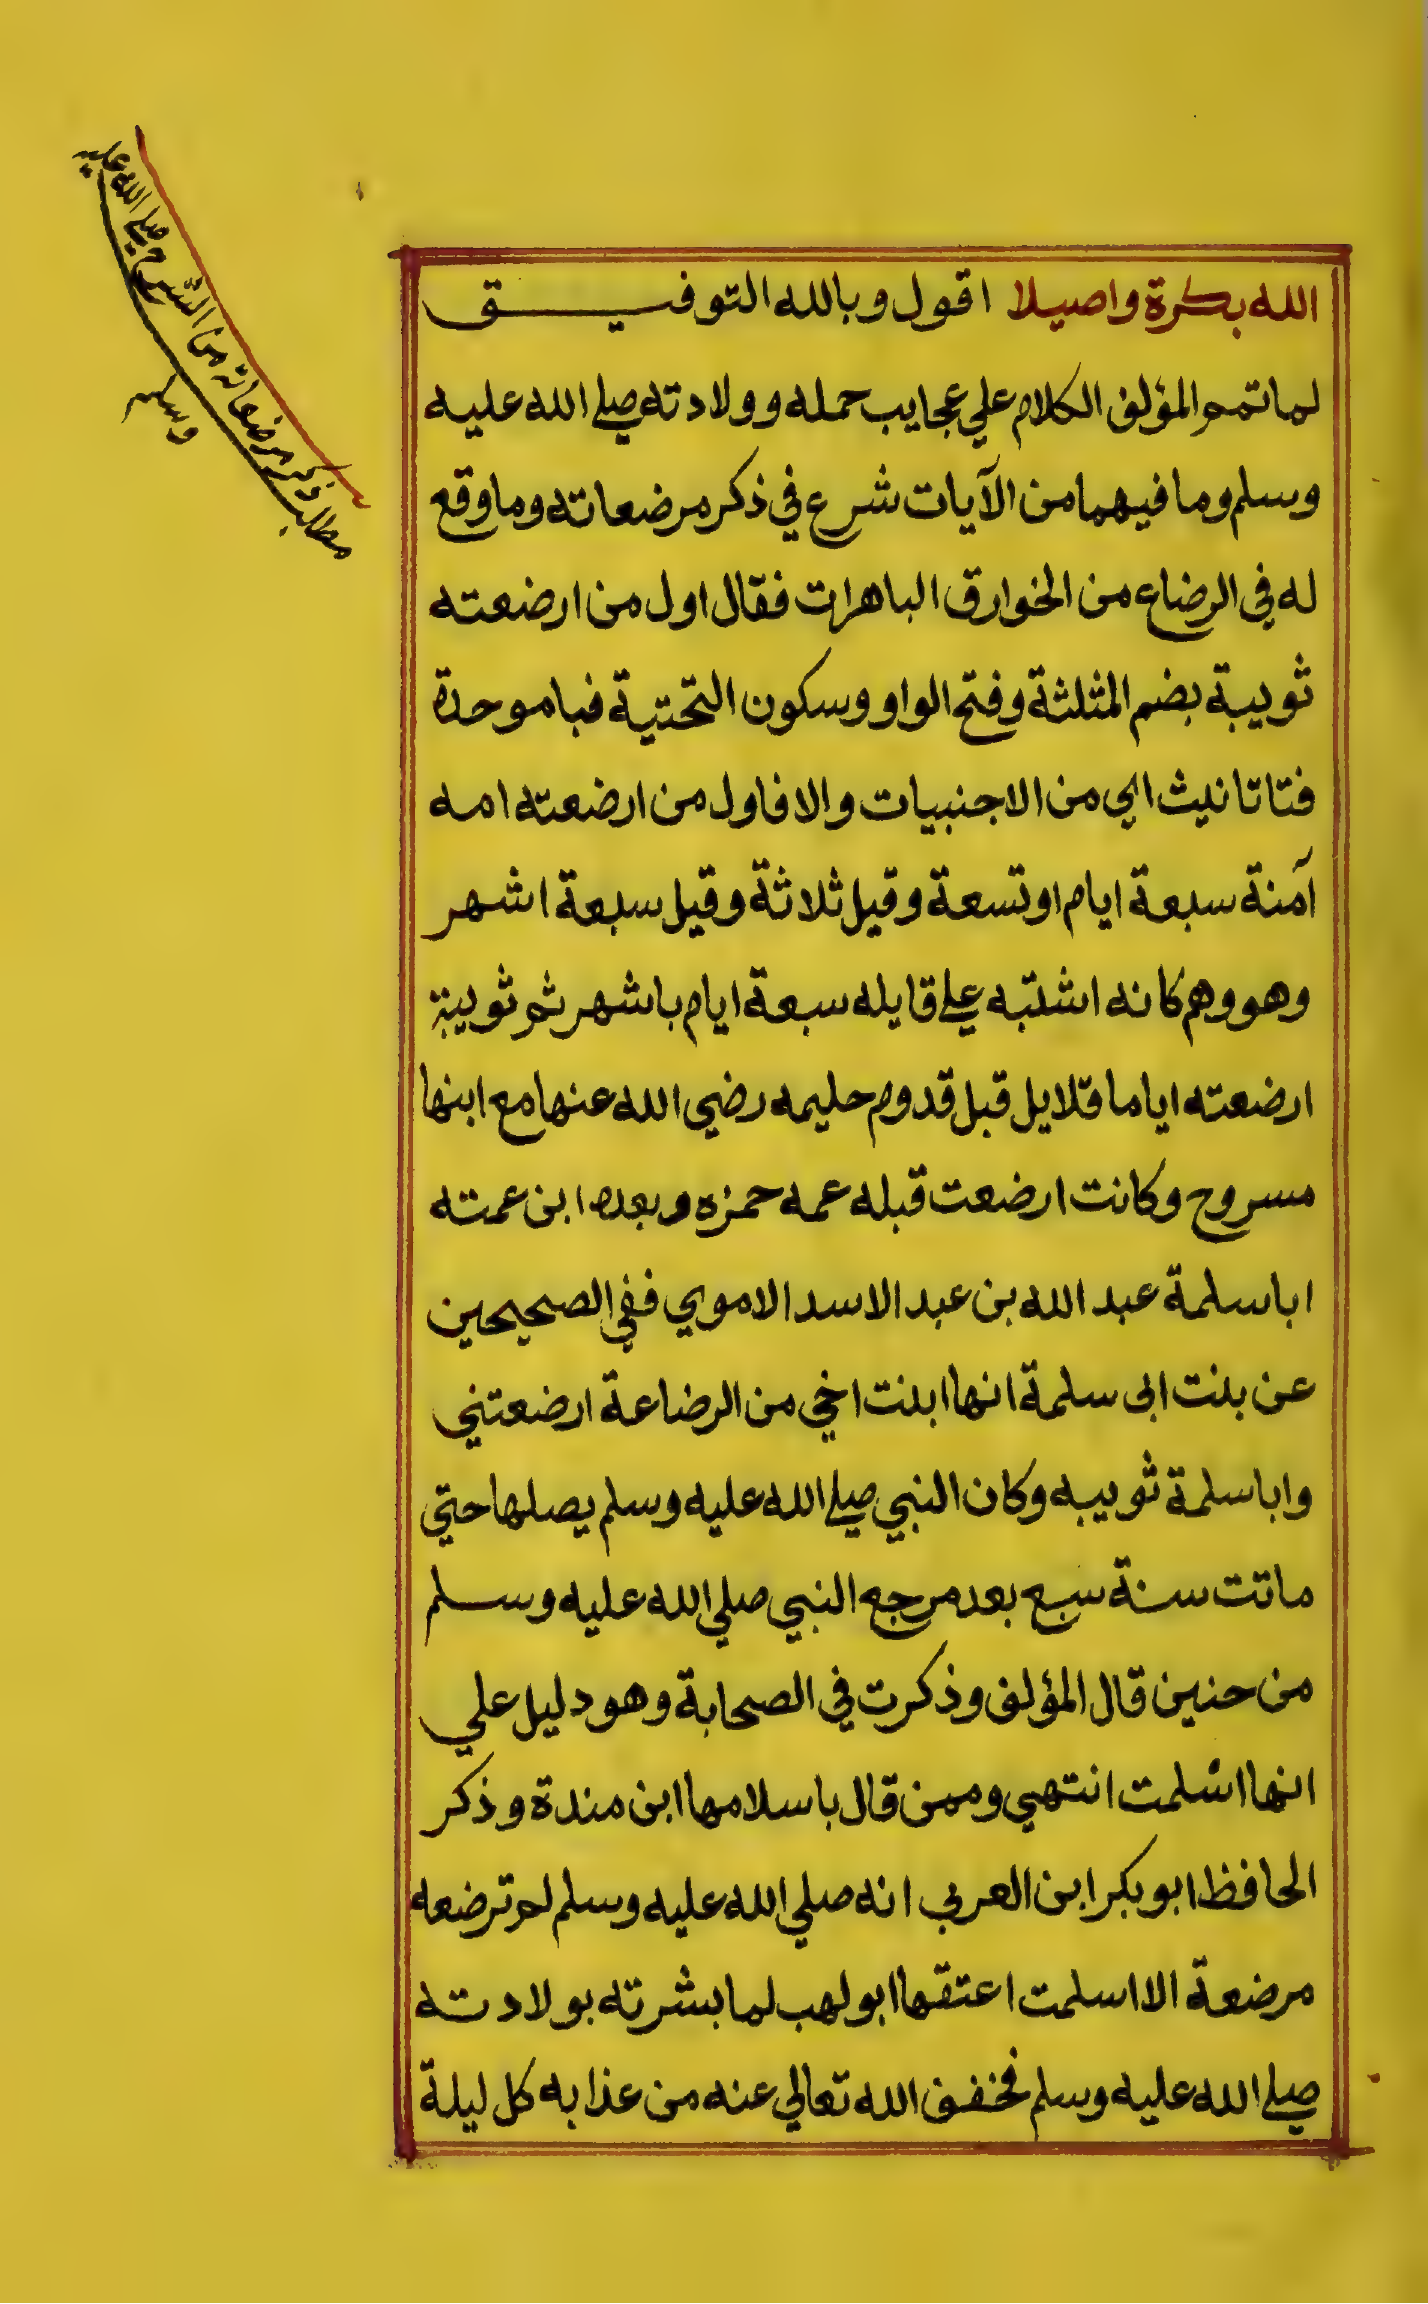 الله بكرة واصيلا اقول وبالله التوفيق
لما تمم المؤلف الكلام علي عجايب حمله وولادته صلي الله عليه
وسلم وما فيهما من الآيات شرع في ذكر مرضعاته وما وقع
له في الرضاع من الخوارق الباهرات فقال اول من ارضعته
ثويبة بضم المثلثة وفتح الواو وسكون التحتية فبا موحدة
فتا تانيث اي من الاجنبيات والا فاول من ارضعته امه
آمنة سبعة ايام او تسعة وقيل ثلاثة وقيل سبعة اشهر
وهو وهم كانه اشتبه علي قايله سبعة ايام باشهر ثم ثويبة
ارضعته اياما قلايل قبل قدوم حليمه رضي الله عنها مع ابنها
مسروح وكانت ارضعت قبله عمه حمزه وبعده ابن عمته
ابا سلمة عبد الله بن عبد الاسد الاموي ففي الصحيحين
عن بنت ابى سلمة انها ابنت اخي من الرضاعة ارضعتني
وابا سلمة ثويبه وكان النبي صلي الله عليه وسلم يصلها حتي
ماتت سنة سبع بعد مرجع النبي صلي الله عليه وسلم
من حنين قال المؤلف وذكرت في الصحابة وهو دليل علي
انها اسلمت انتهي وممن قال باسلامها ابن مندة وذكر
الحافظ ابو بكر ابن العربي انه صلي الله عليه وسلم لم ترضعه
مرضعة الا اسلمت اعتقها ابو لهب لما بشرته بولادته
صلي الله عليه وسلم فخفف الله تعالي عنه من عذابه كل ليلة
مطلب ذكر مرضعاته من صلي الله عليه
وسلم